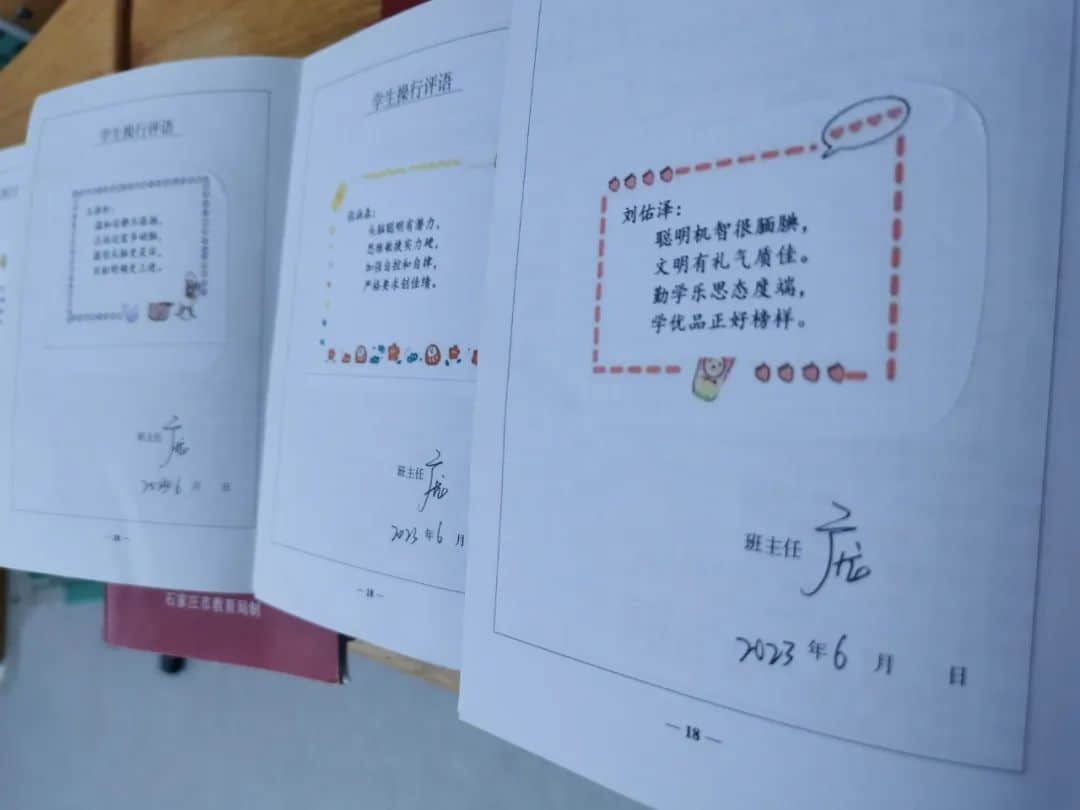 学生操行评语
班主任 庞
2023年6月 日
学生操行评语
头脑聪明有潜力，
思维敏捷实力硬，
加强自控和自律，
严格要求创佳绩。
班主任 庞
2023年6月
— 18 —
刘佑泽：
聪明机智很腼腆，
文明有礼气质佳。
勤学乐思态度端，
学优品正好榜样。
班主任 庞
2023年6月 日
— 18 —
石家庄市教育局制